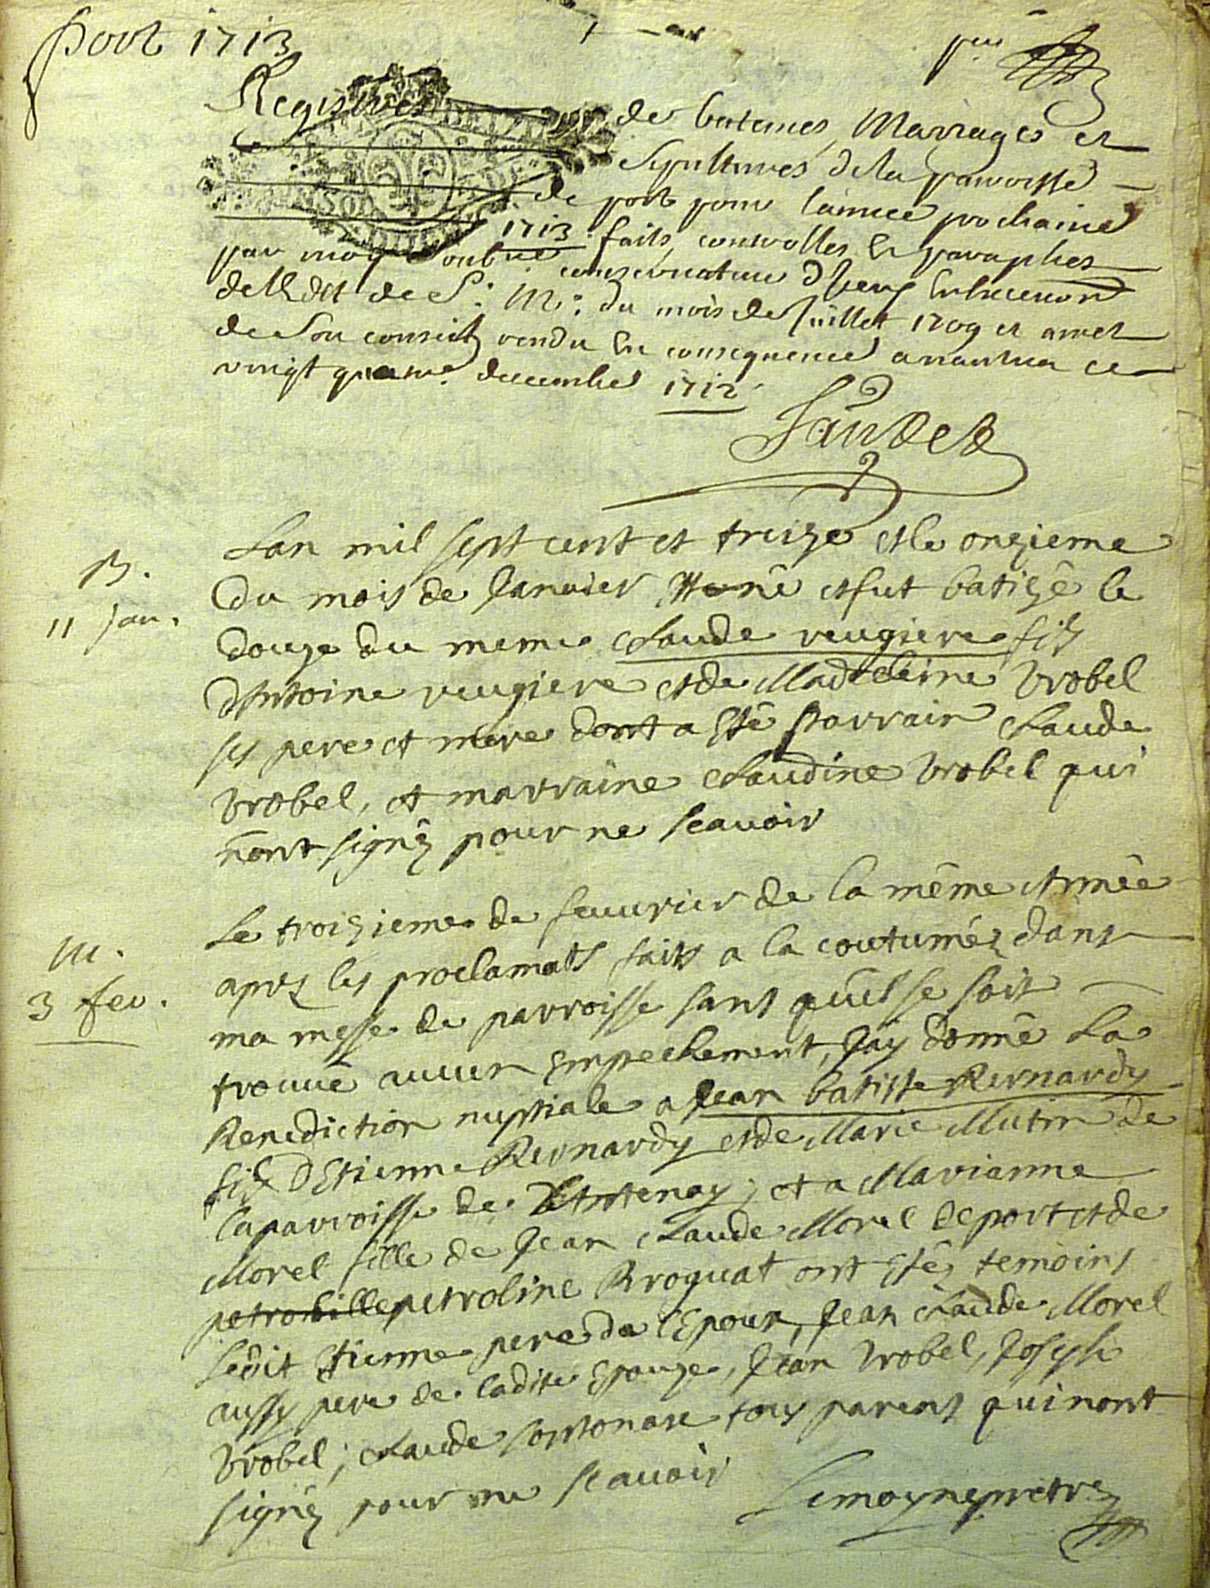 Port 1713
Registres de batemes, Mariages et
Sepultures de la parroisse
de port pour l'année prochaine
1713 faits, controlles et paraphes
par moy
de l'Edit de S. M. du mois de Juillet 1709 et arret
de Son conseil rendu En consequence a nantua ce
vingt quatre decembre 1712
B.
11 Jan.
Lan mil sept cent et treize et le onzieme
Du mois de Janvier est né et fut batizé le
douze du meme Claude reugiere fils
d'Antoine reugiere et de Madeleine Vrobel
ses pere et mere dont a esté parrain Claude
Vrobel, et marraine Claudine Vrobel qui
n'ont signéz pour ne scavoir
M.
3 fev.
Le troizieme de feuvrier de la même Année
aprez les proclamats faits a la coutuméz dans
ma messe de parroisse sans qu'il se soit
trouvé aucun Empechement, J'ay donné La
Benediction nuptiale a Jean batiste Bernardy
filz D'Etienne Bernardy et de Marie Mutin de
la parroisse de Antenay; et a Marianne
Morel fille de Jean Claude Morel de port et de
petrobille petroline Broquat ont estéz temoins
Ledit Etienne pere de l'Epoux, Jean Claude Morel
aussy pere de ladite Epouze, Jean Vrobel, Joseph
Vrobel; Claude sontonax tous parens qui n'ont
signéz pour ne scavoir
Lemoyne pretre